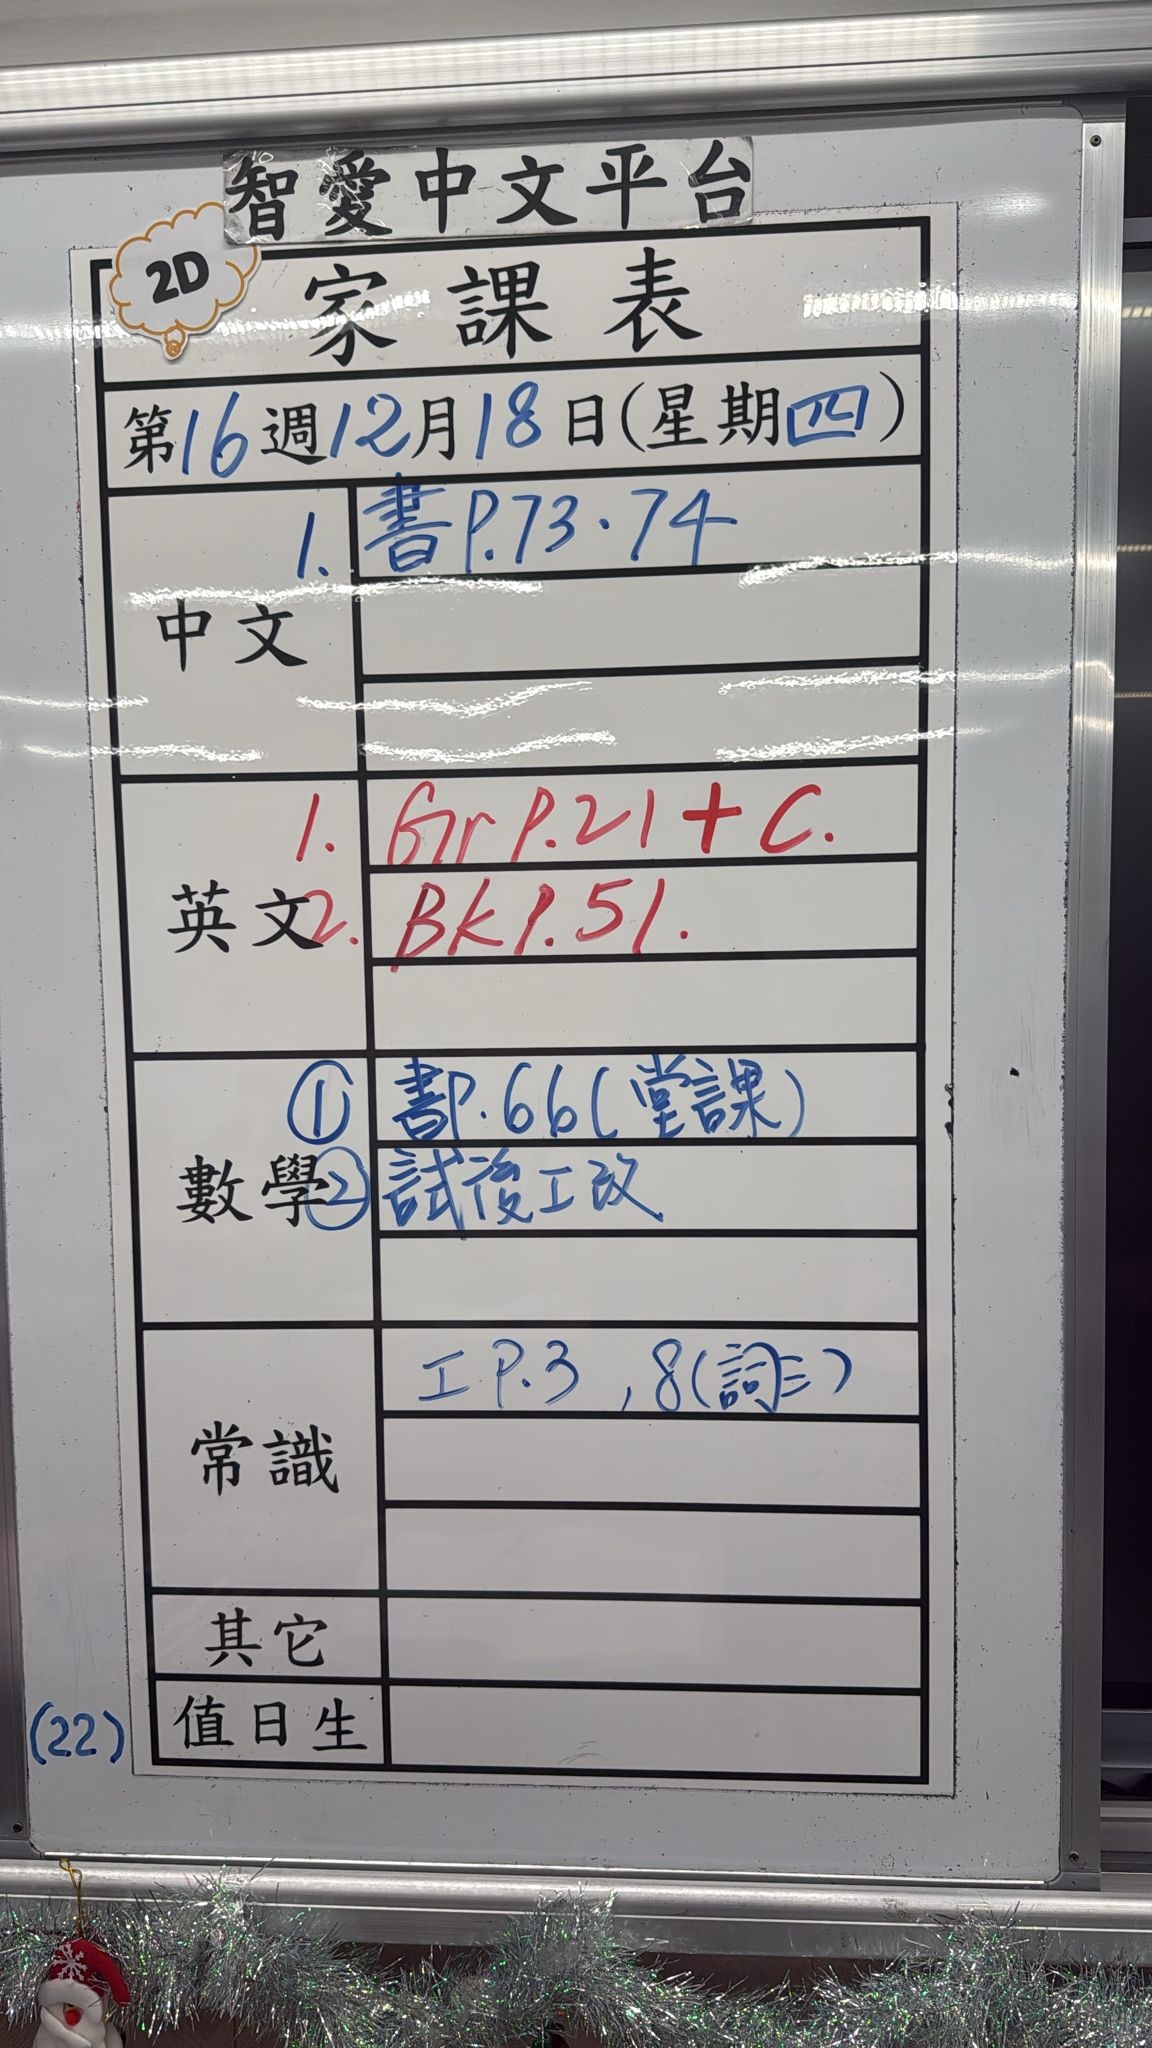 智愛中文平台
2D
家課表
第16週12月18日(星期四)
中文
1. 書P.73.74
英文
1. Gr P.21 + C.
2. Bk P.51.
數學
① 書P.66(堂課)
② 試後工改
常識
工P.3,8(詞三)
其它
值日生
(22)